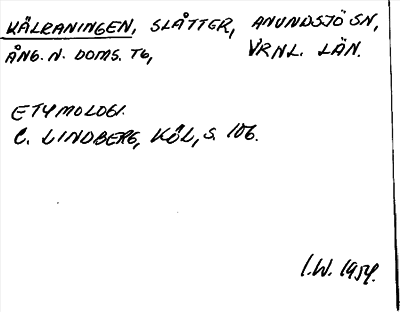 KÄLRANINGEN, SLÅTTER, ANUNDSJÖ SN,
ÅNG. N. DOMS. TG, VRNL. LÄN.
ETYMOLOGI.
C. LINDBERG, KÖL, S. 106.
I.W. 1954.